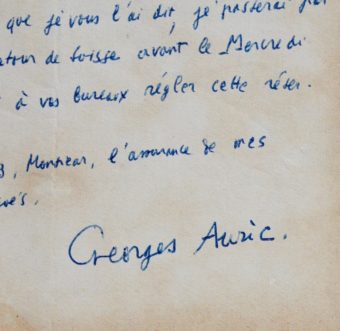 que je vous l'ai dit, je passerai par
de Suisse avant le Mercredi
à vos bureaux régler cette
, Monsieur, l'assurance de mes
Georges Auric.